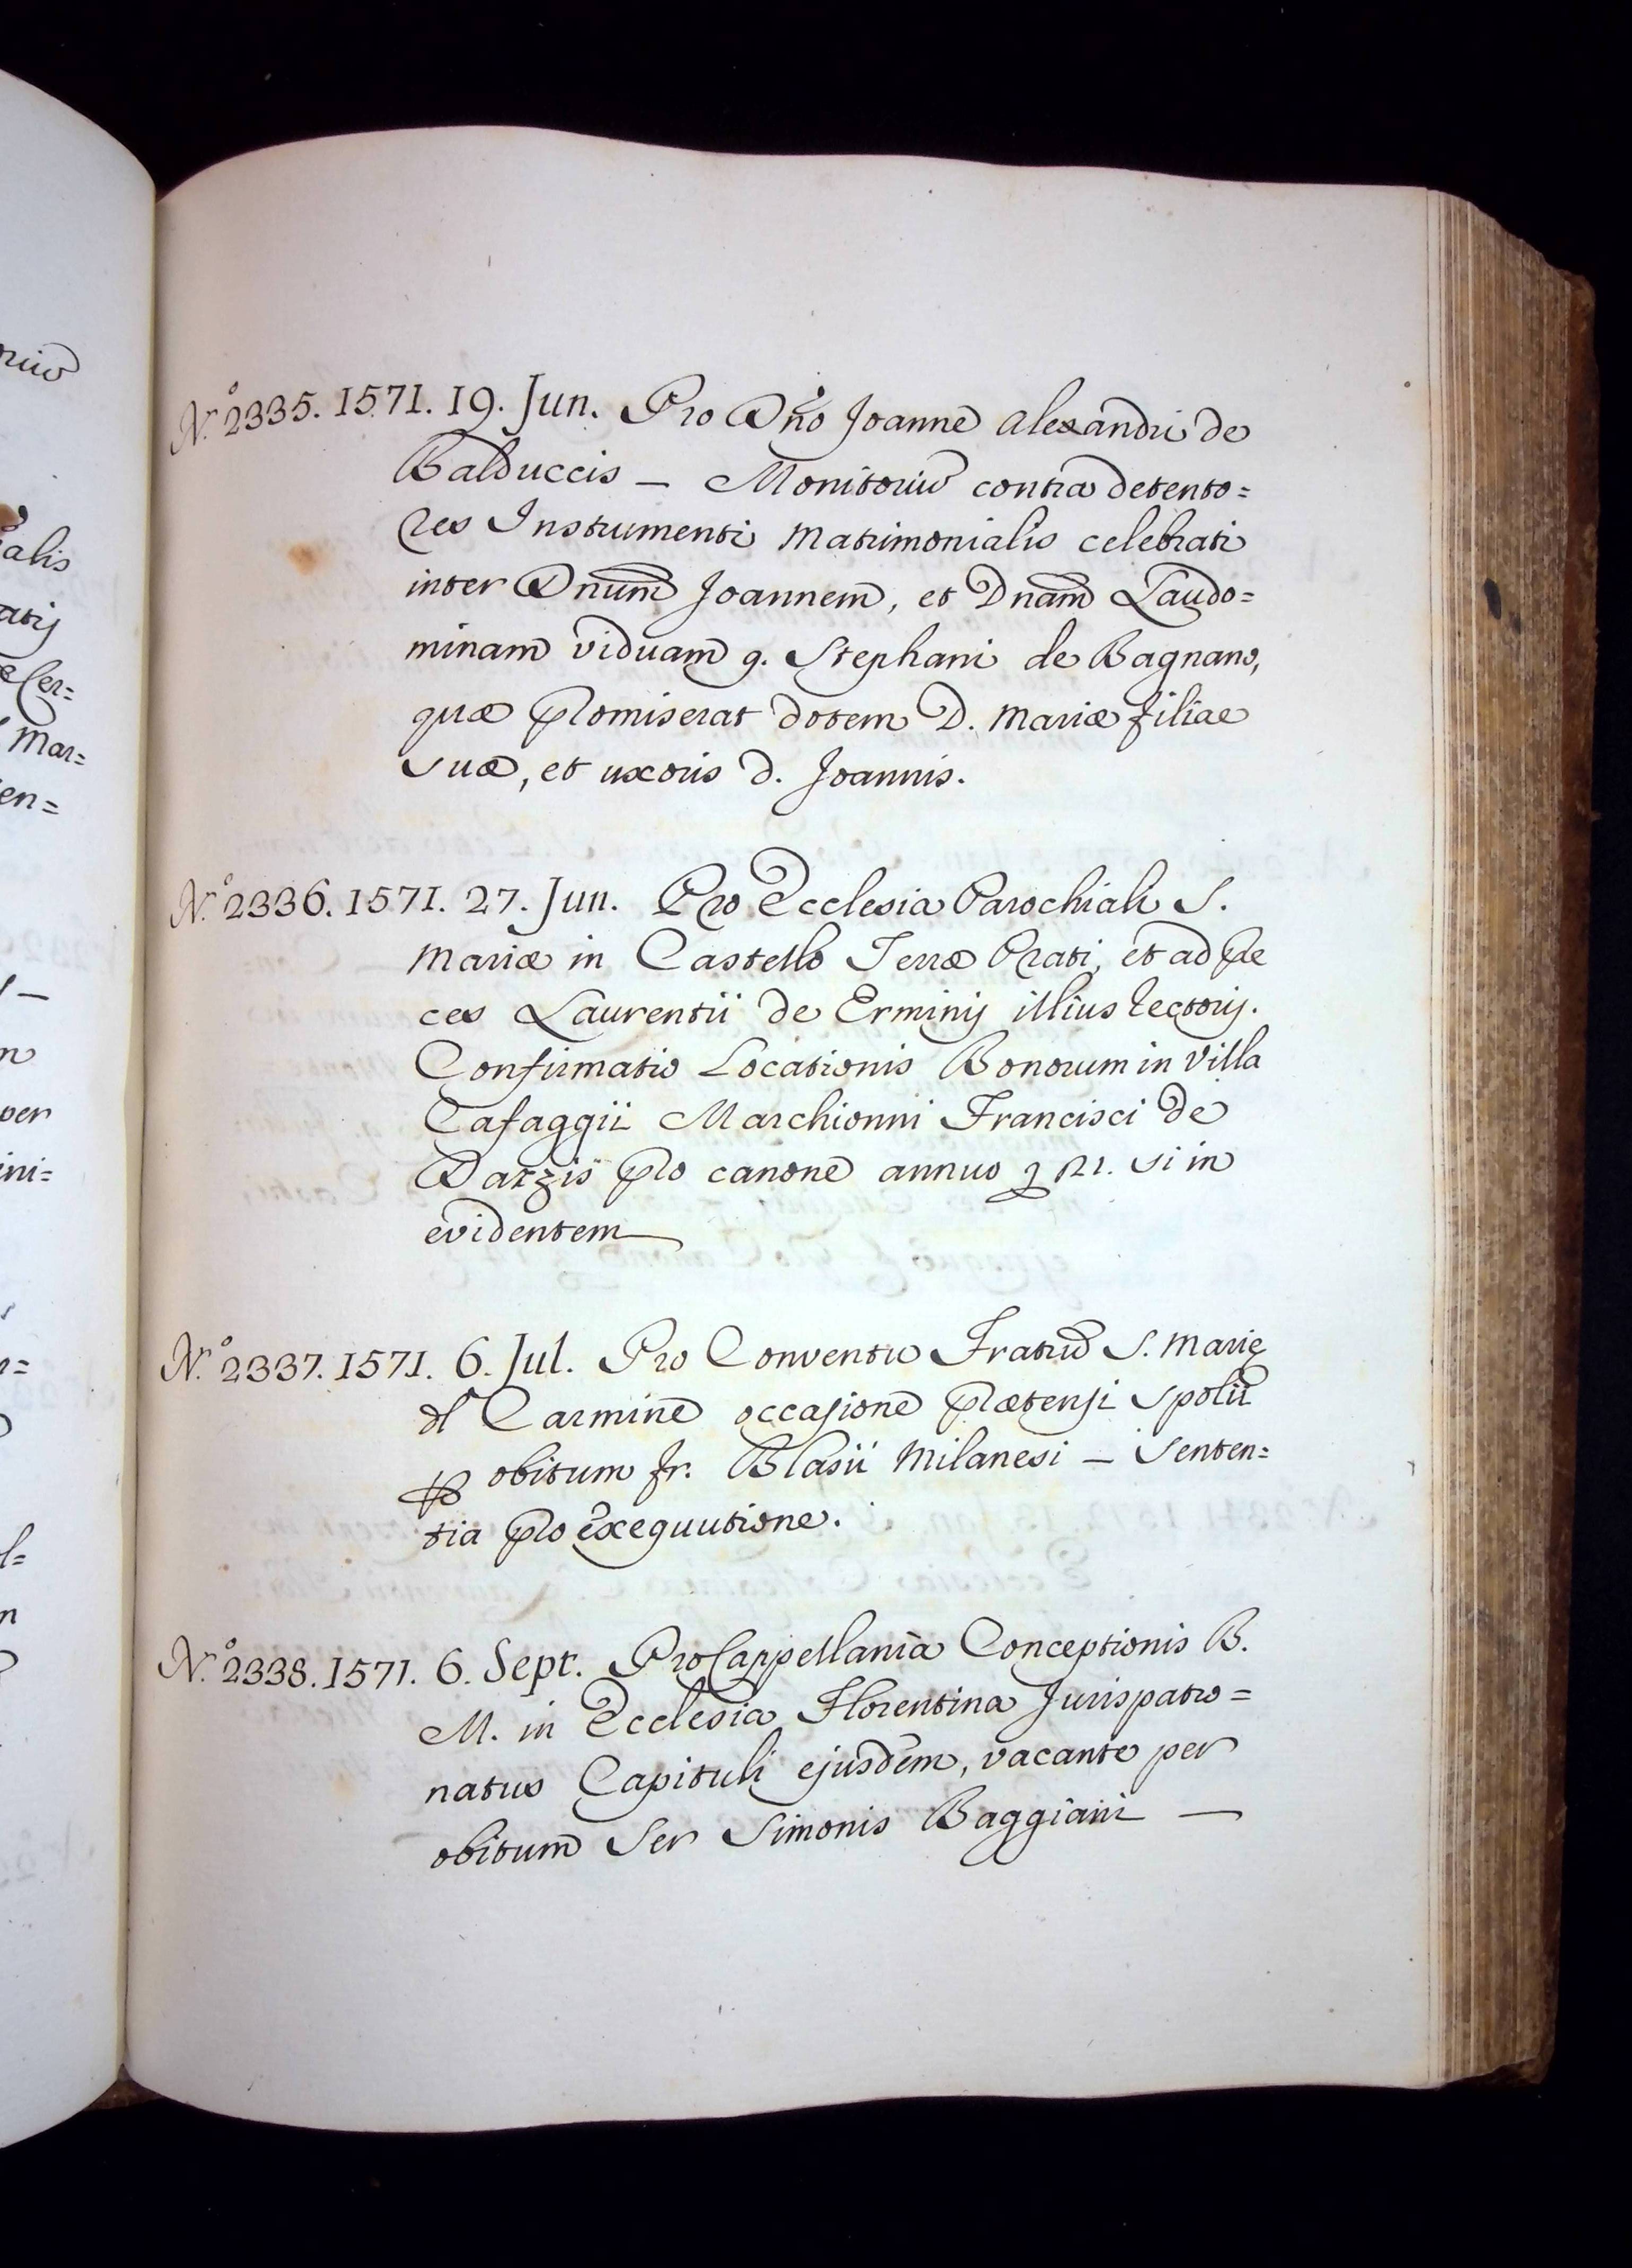 N.º 2335. 1571. 19. Jun. Pro Dño Joanne Alexandri de
Balduccis — Monitoriũ contra detento=
res Instrumenti Matrimonialis celebrati
inter Dnum̃ Joannem, et Dnam̃ Laudo=
minam viduam q. Stephani de Bagnano,
quæ promiserat dotem D. Mariæ filiae
suæ, et uxoris d. Joannis.
N.º 2336. 1571. 27. Jun. Pro Ecclesia Parochiali S.
Mariæ in Castello Terræ Prati, et ad pre
ces Laurentii de Erminij illius rectorij.
Confirmatio Locationis Bonorum in Villa
Cafaggii Marchionni Francisci de
Datzis pro canone annuo si in
evidentem
N.º 2337. 1571. 6. Jul. Pro Conventu Fratrũ S. Marię
dl Carmine occasione prætensi spolii
obitum fr. Blasii Milanesi — Senten=
tia pro exequutione.
N.º 2338. 1571. 6. Sept. Pro Cappellania Conceptionis B.
M. in Ecclesia Florentina Jurispatro=
natus Capituli ejusdem, vacante per
obitum Ser Simonis Baggiani —
ruiũ
alis
atij
e Cer=
Mar=
en=
—
per
ini=